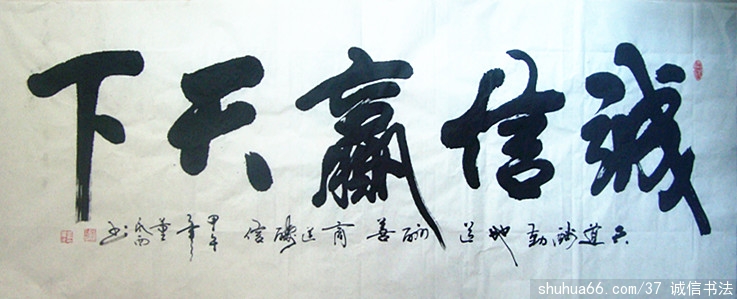 诚信赢天下
天道酬勤 地道酬善 商道酬信
甲午年 董永西 书
shuhua66.com/37 诚信书法